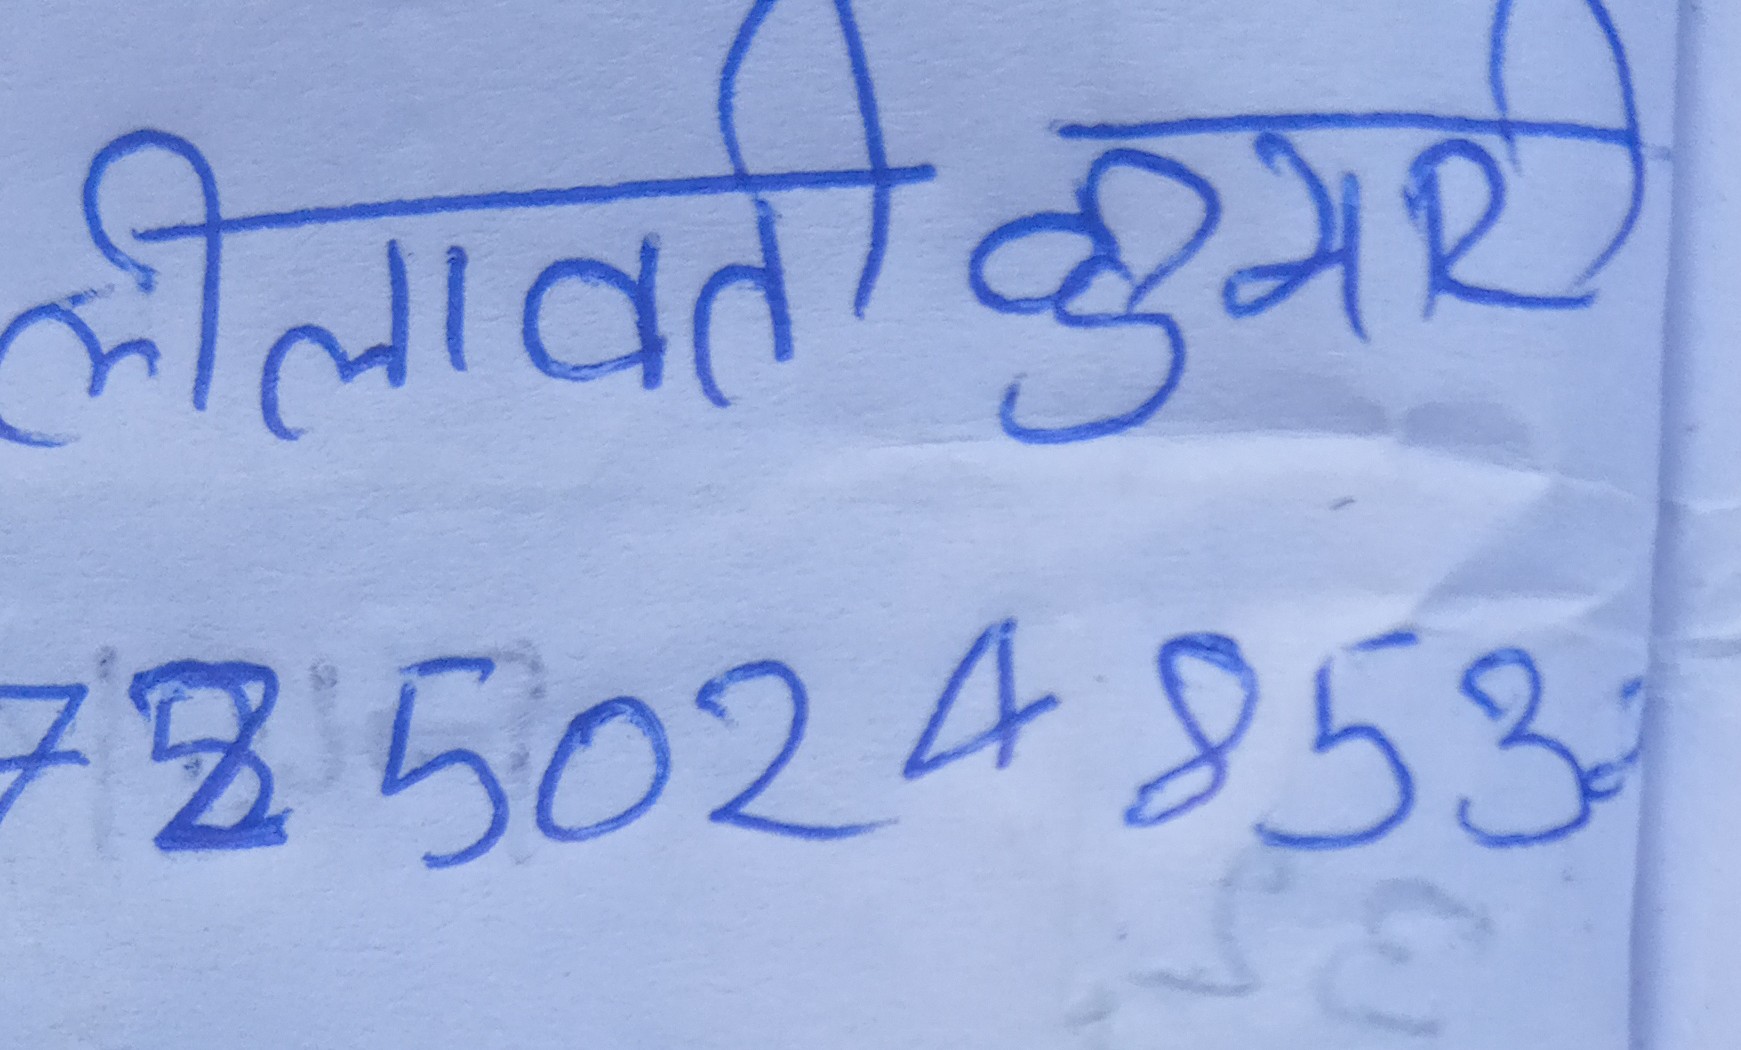 लीलावती कुमरी
785024853